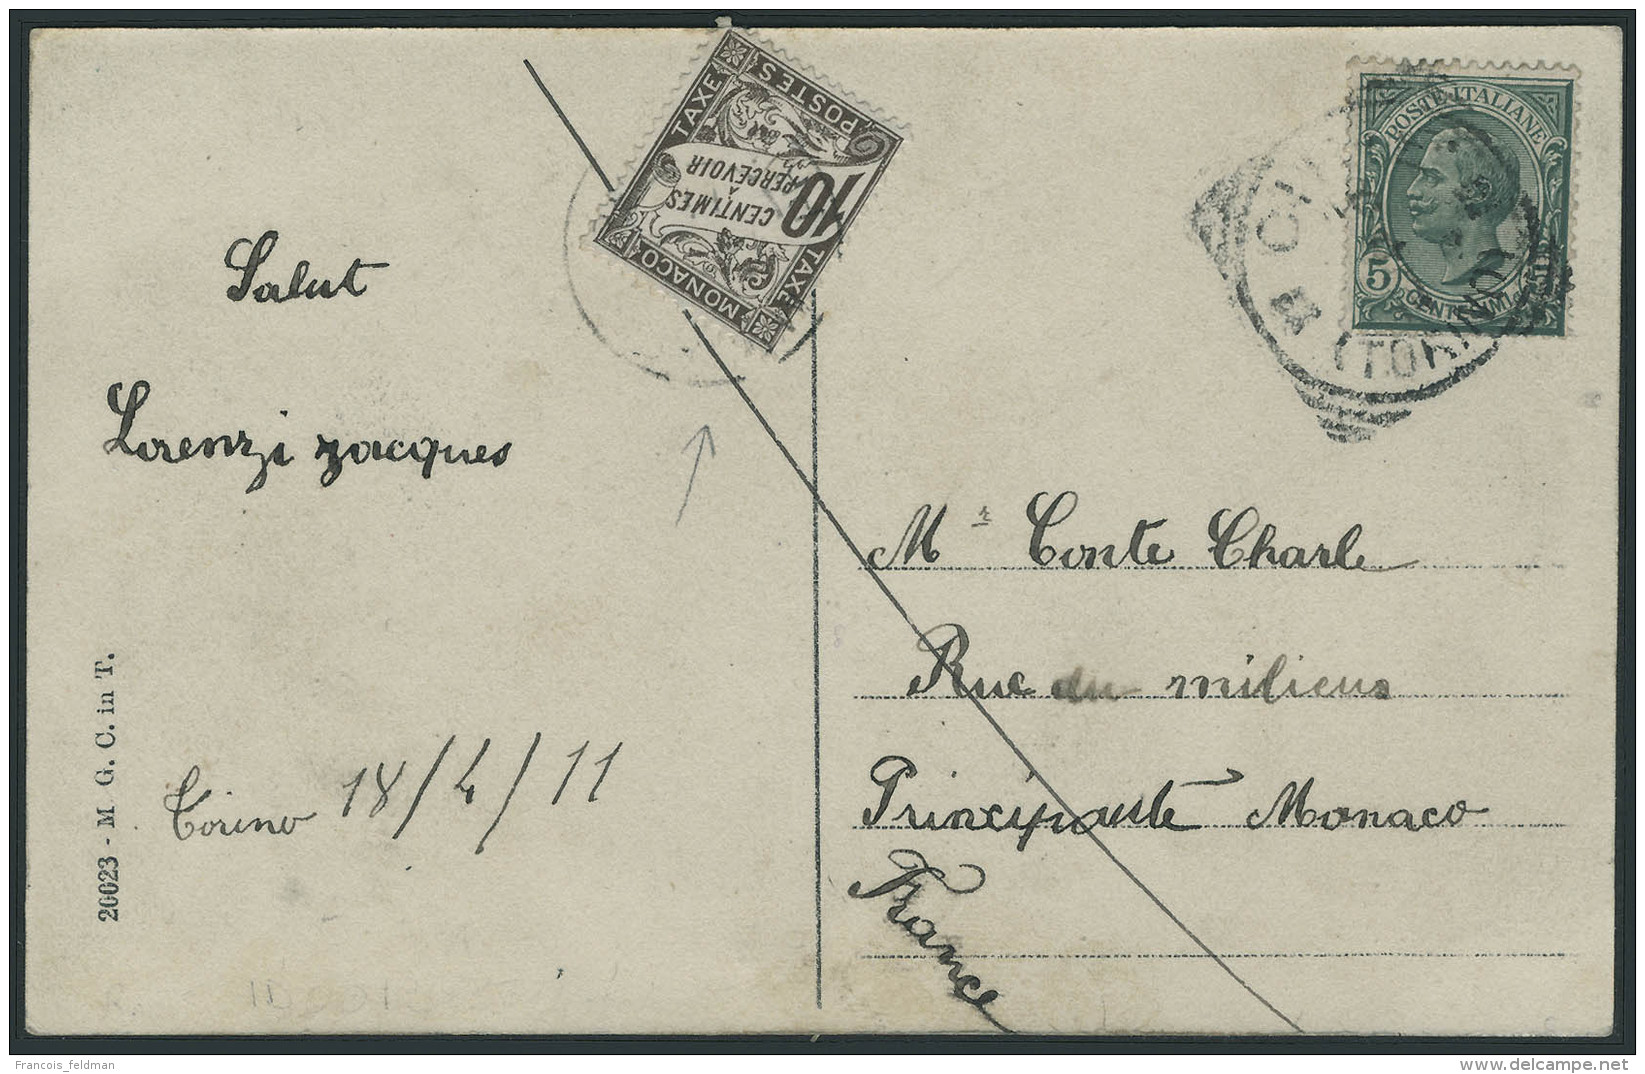 Salut
Lorenzi Jacques
Torino 18/4/11
20023 - M G. C. in T.
MONACO
TAXE
TAXE
POSTES
10
CENTIMES
A
PERCEVOIR
POSTE ITALIANE
5
CENTESIMI
(TORINO)
Mr Conte Charle
Rue du milieus
Principauté Monaco
France
Francois_feldman
delcampe.net